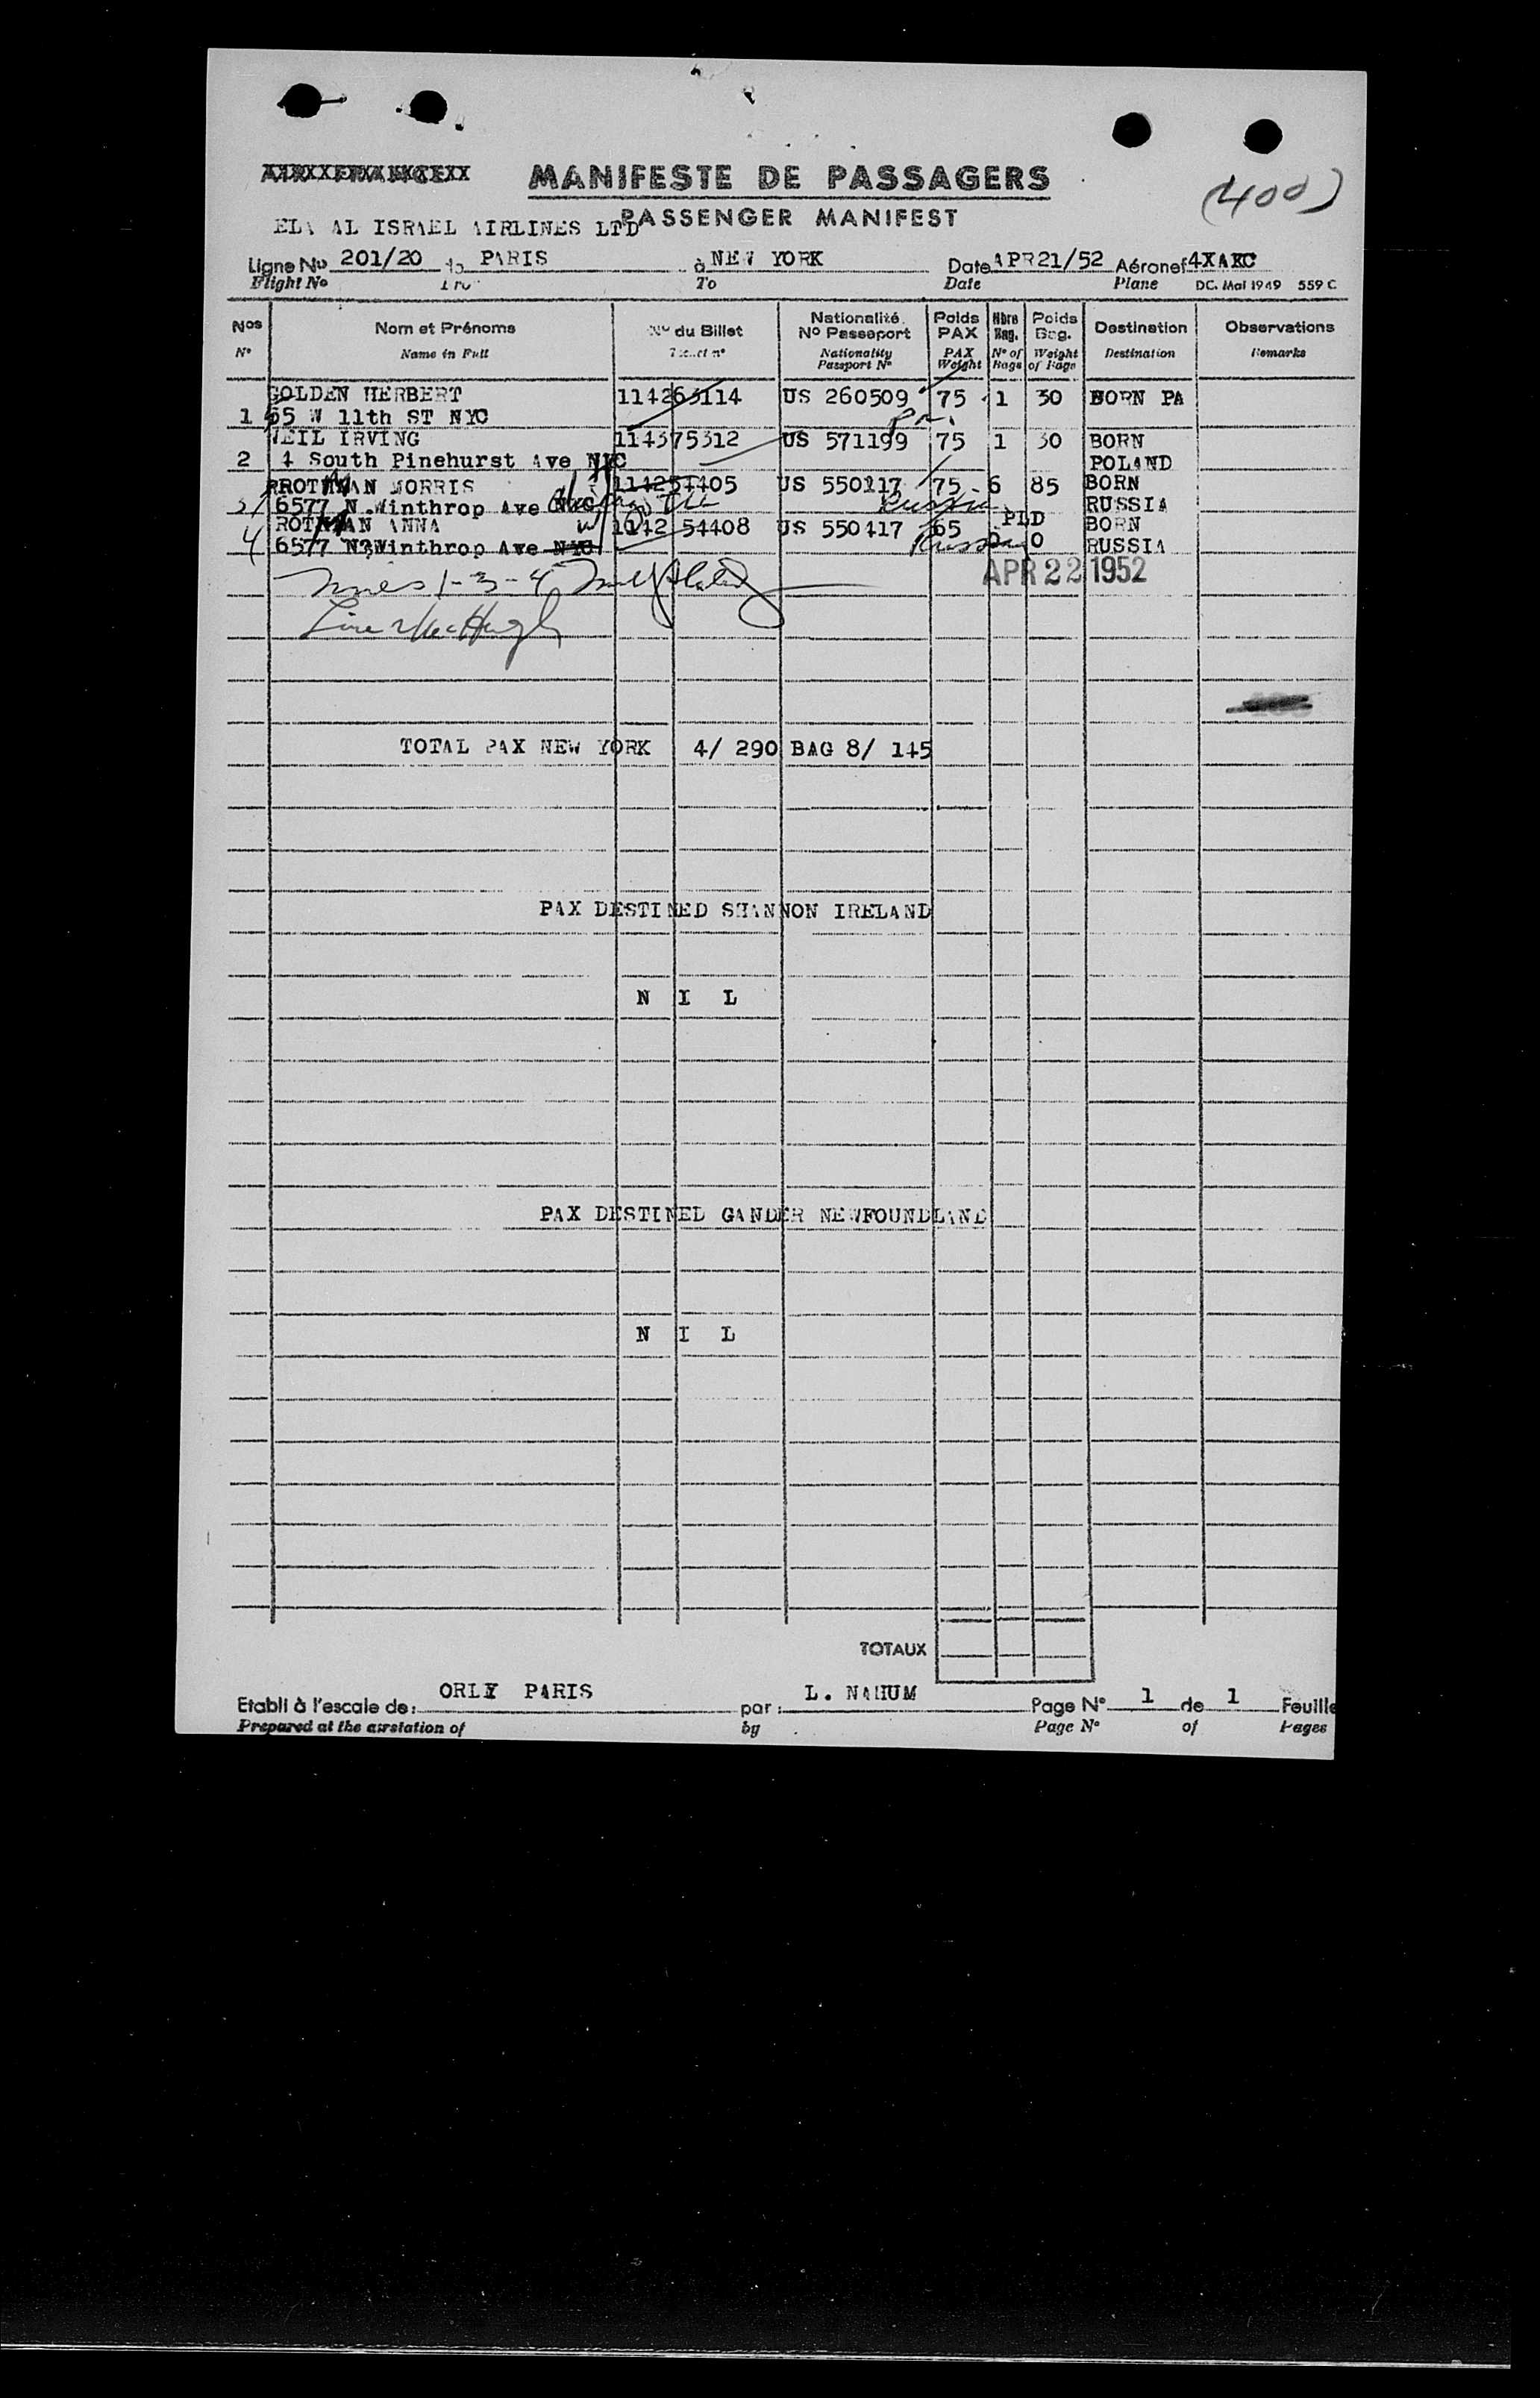 MANIFESTE DE PASSAGERS
(400)
ELA AL ISRAEL AIRLINES LTD PASSENGER MANIFEST
Ligne No 201/20 de PARIS à NEW YORK Date APR21/52 Aéronef 4XAKC
Flight No To Date Plane DC. Mai 1949 559 C
Nos Nom et Prénoms No du Billet Nationalité No Passeport Poids PAX Nbre Bag. Poids Bag. Destination Observations
No Name in Full Ticket no Nationality Passport No PAX Weight No of Bags Weight of Bags Destination Remarks
GOLDEN HERBERT 114263114 US 260509 75 1 30 BORN PA
1 55 W 11th ST NYC Pa.
WEIL IRVING 114375312 US 571199 75 1 30 BORN
2 4 South Pinehurst Ave NYC POLAND
ROTMAN MORRIS 114254405 US 550417 75 6 85 BORN
3 6577 N. Winthrop Ave NYC Chicago Ill Russia RUSSIA
ROTMAN ANNA 1142 54408 US 550417 65 PLD BORN
4 6577 N. Winthrop Ave NYC Russia 0 0 RUSSIA
APR 22 1952
1-3-4
Line 2
TOTAL PAX NEW YORK 4/ 290 BAG 8/ 145
PAX DESTINED SHANNON IRELAND
N I L
PAX DESTINED GANDER NEWFOUNDLAND
N I L
TOTAUX
Etabli à l'escale de: ORLY PARIS par: L. NAHUM Page No 1 de 1 Feuille
Prepared at the airstation of by Page No of Pages